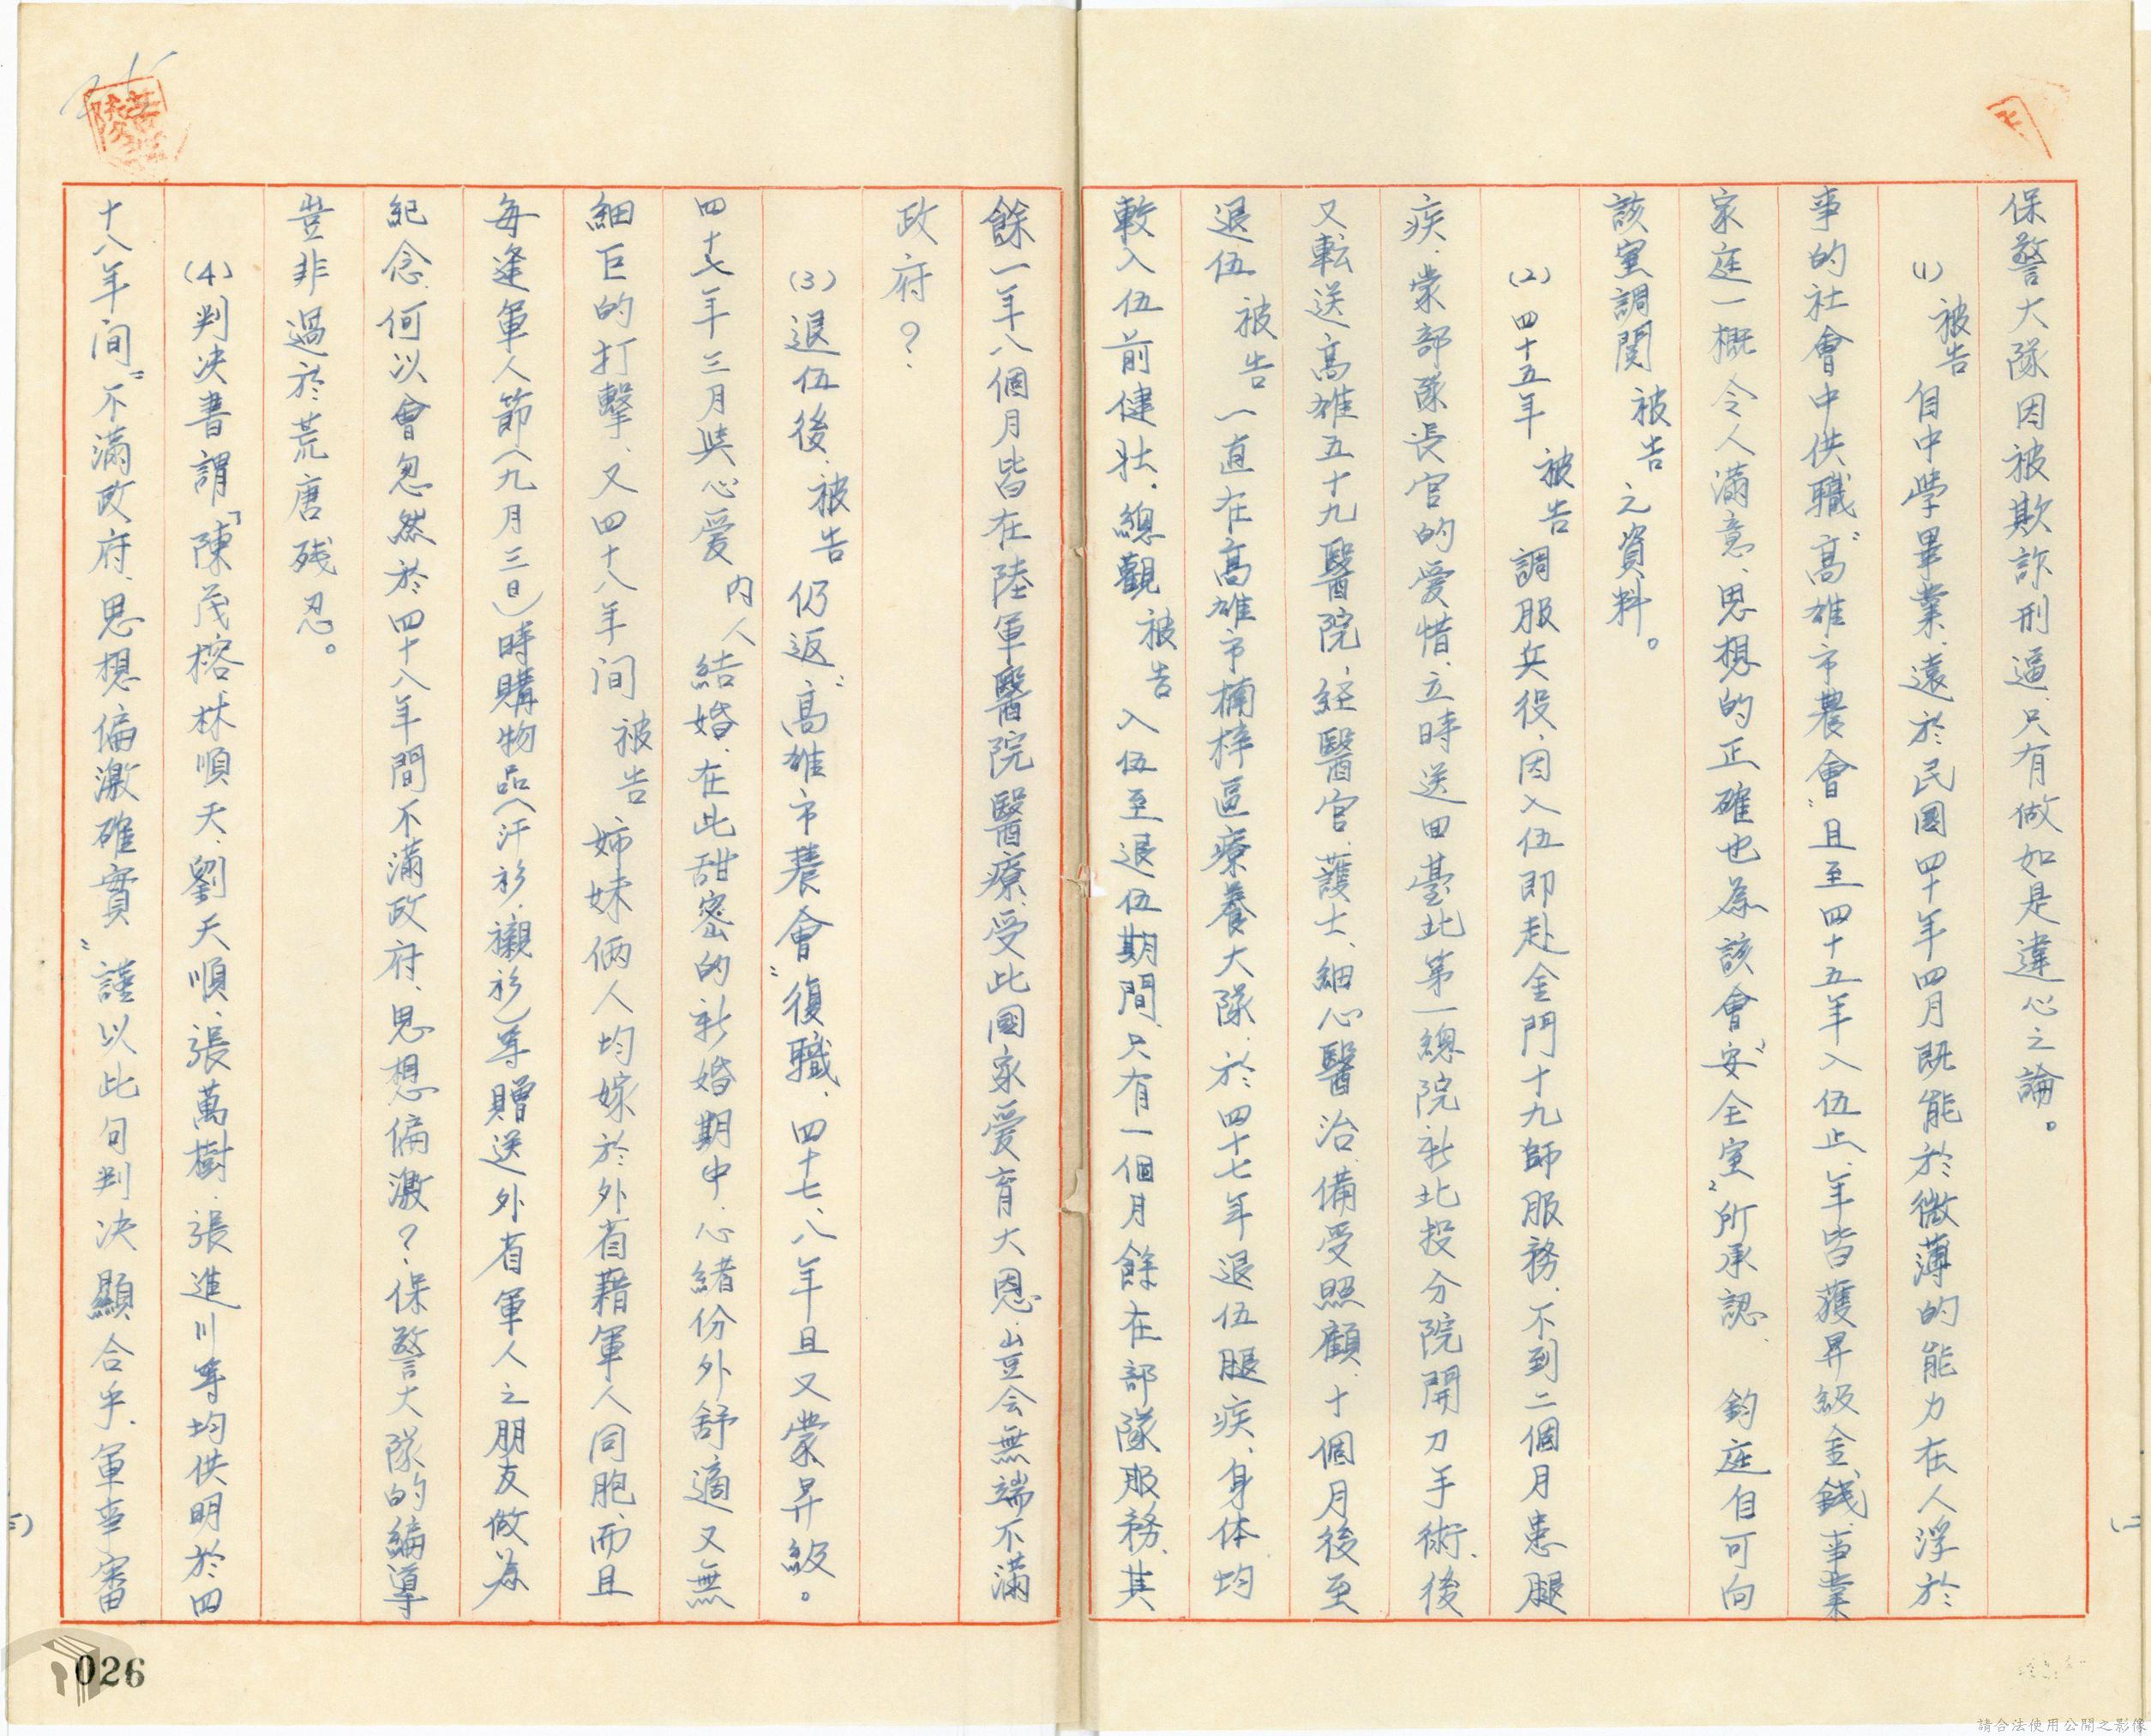 保警大隊因被欺詐刑逼、只有做如是違心之論。
(1)被告自中學畢業、遠於民國四十年四月既能於微薄的能力在人浮於
事的社會中供職"高雄市農會"且至四十五年入伍止、年皆獲昇級金錢、事業
家庭一概令人滿意、思想的正確也為該會"安全室"所承認、鈞庭自可向
該室調閱被告之資料。
(2)四十五年被告調服兵役、因入伍即赴金門十九師服務、不到二個月患腿
疾、蒙部隊長官的愛惜、立時送回臺北第一總院新北投分院開刀手術、後
又転送高雄五十九醫院、経醫官、護士、細心醫治、備受照顧、十個月後至
退伍被告一直在高雄市楠梓區療養大隊、於四十七年退伍腿疾、身体均
較入伍前健壯、總觀被告入伍至退伍期間、只有一個月餘在部隊服務、其
餘一年八個月皆在陸軍醫院醫療、受此國家愛育大恩、豈会無端不滿
政府?
(3)退伍後、被告仍返"高雄市農會"復職、四十七、八年且又蒙昇級。
四十七年三月與心愛內人結婚、在此甜密的新婚期中、心緒份外舒適又無
細巨的打擊、又四十八年间被告姉妹倆人均嫁於外省藉軍人同胞、而且
每逢軍人節(九月三日)時購物品(汗衫、襯衫)等贈送外省軍人之朋友做為
紀念、何以會忽然於四十八年間不滿政府、思想偏激?保警大隊的編導
豈非過於荒唐残忍。
(4)判決書謂「陳茂榕、林順天、劉天順、張萬樹、張進川等均供明於四
十八年间"不滿政府、思想偏激確實"謹以此句判決顯合乎、軍事審
026
請合法使用公開之影像